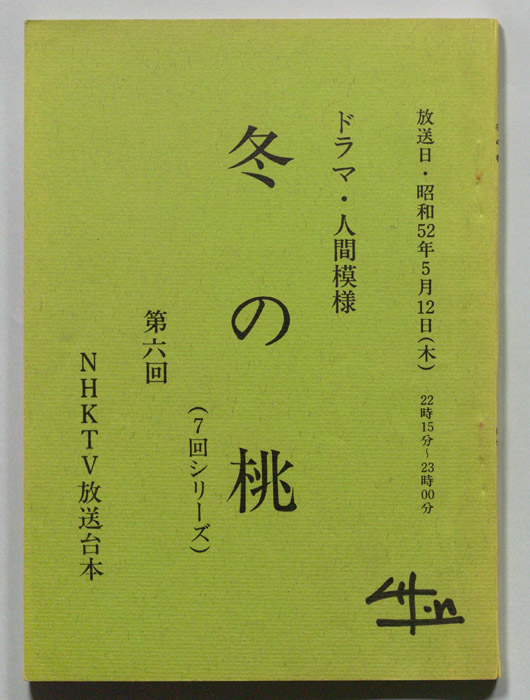 放送日・昭和52年5月12日(木) 22時15分~23時00分
ドラマ・人間模様
冬の桃
(7回シリーズ)
第六回
NHKTV放送台本